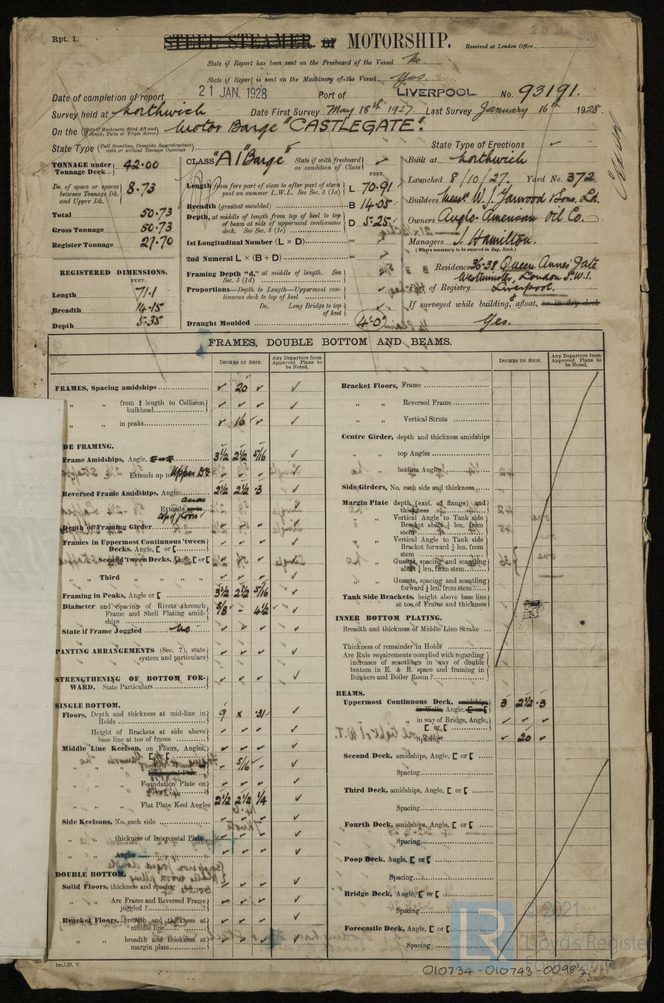 Rpt. 1.
STEEL STEAMER or MOTORSHIP.
Received at London Office
State if Report has been sent on the Freeboard of the Vessel No
State if Report is sent on the Machinery of the Vessel Yes
Date of completion of report 21 JAN. 1928 Port of LIVERPOOL No. 93191.
Survey held at Northwich Date First Survey May 18th 1927 Last Survey January 16th 1928
On the Motor Barge "CASTLEGATE".
State Type State Type of Erections
TONNAGE under Tonnage Deck 42.00
Do. of space or spaces between Tonnage Dk. and Upper Dk. 8.73
Total 50.73
Gross Tonnage 50.73
Register Tonnage 27.70
REGISTERED DIMENSIONS.
FEET.
Length 71.1
Breadth 14.15
Depth 5.35
CLASS "A1 Barge" State if with freeboard as condition of Class
FEET.
Length from fore part of stem to after part of stern post on summer L.W.L. See Sec. 3 (1a) L 70.91
Breadth (greatest moulded) B 14.05
Depth, at middle of length from top of keel to top of beam at side of uppermost continuous deck. See Sec. 3 (1c) D 5.25
1st Longitudinal Number (L × D)
2nd Numeral L × (B + D)
Framing Depth "d," at middle of length. See Sec. 3 (1d)
Proportions—Depth to Length—Uppermost continuous deck to top of keel
Do. Long Bridge to top of keel
Draught Moulded 4.0
Built at Northwich
Launched 8/10/27. Yard No. 372
Builders Messrs W. J. Yarwood & Sons, Ld.
Owners Anglo American Oil Co.
Managers J. Hamilton.
(Where necessary to be entered in Reg. Book)
Residence 36-38 Queen Anne's Gate
Westminster, London S.W.1.
Port of Registry Liverpool.
If surveyed while building, afloat, or in dry dock
Yes.
FRAMES, DOUBLE BOTTOM AND BEAMS.
INCHES IN SHIP. Any Departure from Approved Plans to be Noted.
FRAMES, Spacing amidships 20
" " from ⅗ length to Collision bulkhead
" " in peaks 16
SIDE FRAMING.
Frame Amidships, Angle, 3½ 2½ 5/16
" " Extends up to Upper Dk
Reversed Frame Amidships, Angle 2½ 2½ .3
" " Extends
Depth of Framing Girder
Frames in Uppermost Continuous 'tween Decks, Angle, [ or [
" " Second 'tween Decks, Angle, [ or [
" " Third " "
Framing in Peaks, Angle or [ 3½ 2½ 5/16
Diameter and Spacing of Rivets through Frame and Shell Plating amidships 5/8 - 4½
State if Frame Joggled No
PANTING ARRANGEMENTS (Sec. 7), state system and particulars
STRENGTHENING OF BOTTOM FORWARD. State Particulars
SINGLE BOTTOM.
Floors, Depth and thickness at mid-line in Holds 9 x .31
" Height of Brackets at side above base line at toe of frame
Middle Line Keelson, on Floors, Angles, [ or [
5/16
" " Foundation Plate on
" " Flat Plate Keel Angles 2½ 2½ ¼
Side Keelsons, No. each side
" " thickness of Intercostal Plate
" " Angles
DOUBLE BOTTOM.
Solid Floors, thickness and spacing
" " Are Frame and Reversed Frame joggled?
Bracket Floors, breadth and thickness at middle line
" " breadth and thickness at margin plate
INCHES IN SHIP. Any Departure from Approved Plans to be Noted.
Bracket Floors, Frame
" " Reversed Frame
" " Vertical Struts
Centre Girder, depth and thickness amidships
" " top Angles
" " bottom Angles
Side Girders, No. each side and thickness
Margin Plate depth (excl. of flange) and thickness
" " Vertical Angle to Tank side Bracket abaft ¼ len. from stem
" " Vertical Angle to Tank side Bracket forward ¼ len. from stem
" " Gussets, spacing and scantling abaft ¼ len. from stem
" " Gussets, spacing and scantling forward ¼ len. from stem
Tank Side Brackets, height above base line at toe of Frame and thickness
INNER BOTTOM PLATING.
Breadth and thickness of Middle Line Strake
Thickness of remainder in Holds
Are Rule requirements complied with regarding increases of scantlings in way of double bottom in E. & B. space and framing in Bunkers and Boiler Room?
BEAMS.
Uppermost Continuous Deck, amidships 3 2½ .3
" " in way of Bridge, Angle, [ or [
Spacing 20
Second Deck, amidships, Angle, [ or [
Spacing
Third Deck, amidships, Angle, [ or [
Spacing
Fourth Deck, amidships, Angle, [ or [
Spacing
Poop Deck, Angle, [ or [
Spacing
Bridge Deck, Angle, [ or [
Spacing
Forecastle Deck, Angle, [ or [
Spacing
LR
© 2021
Lloyd's Register
Foundation
010734-010743-0098